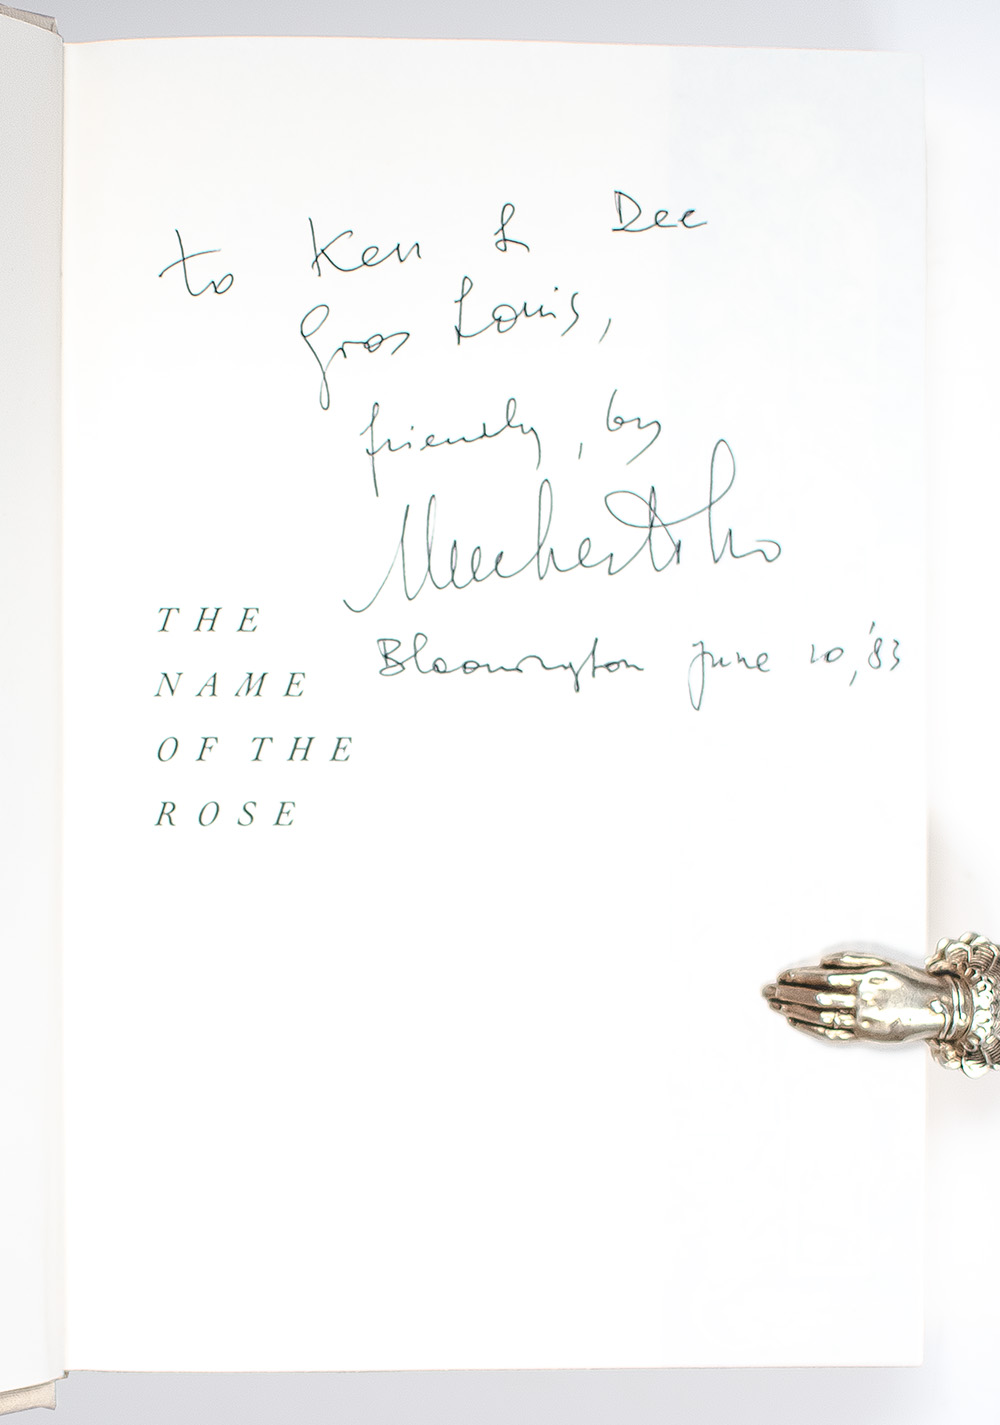 to Ken & Dee
Gros Louis,
friendly, by
Umberto Eco
Bloomington June 20, '83
THE
NAME
OF THE
ROSE